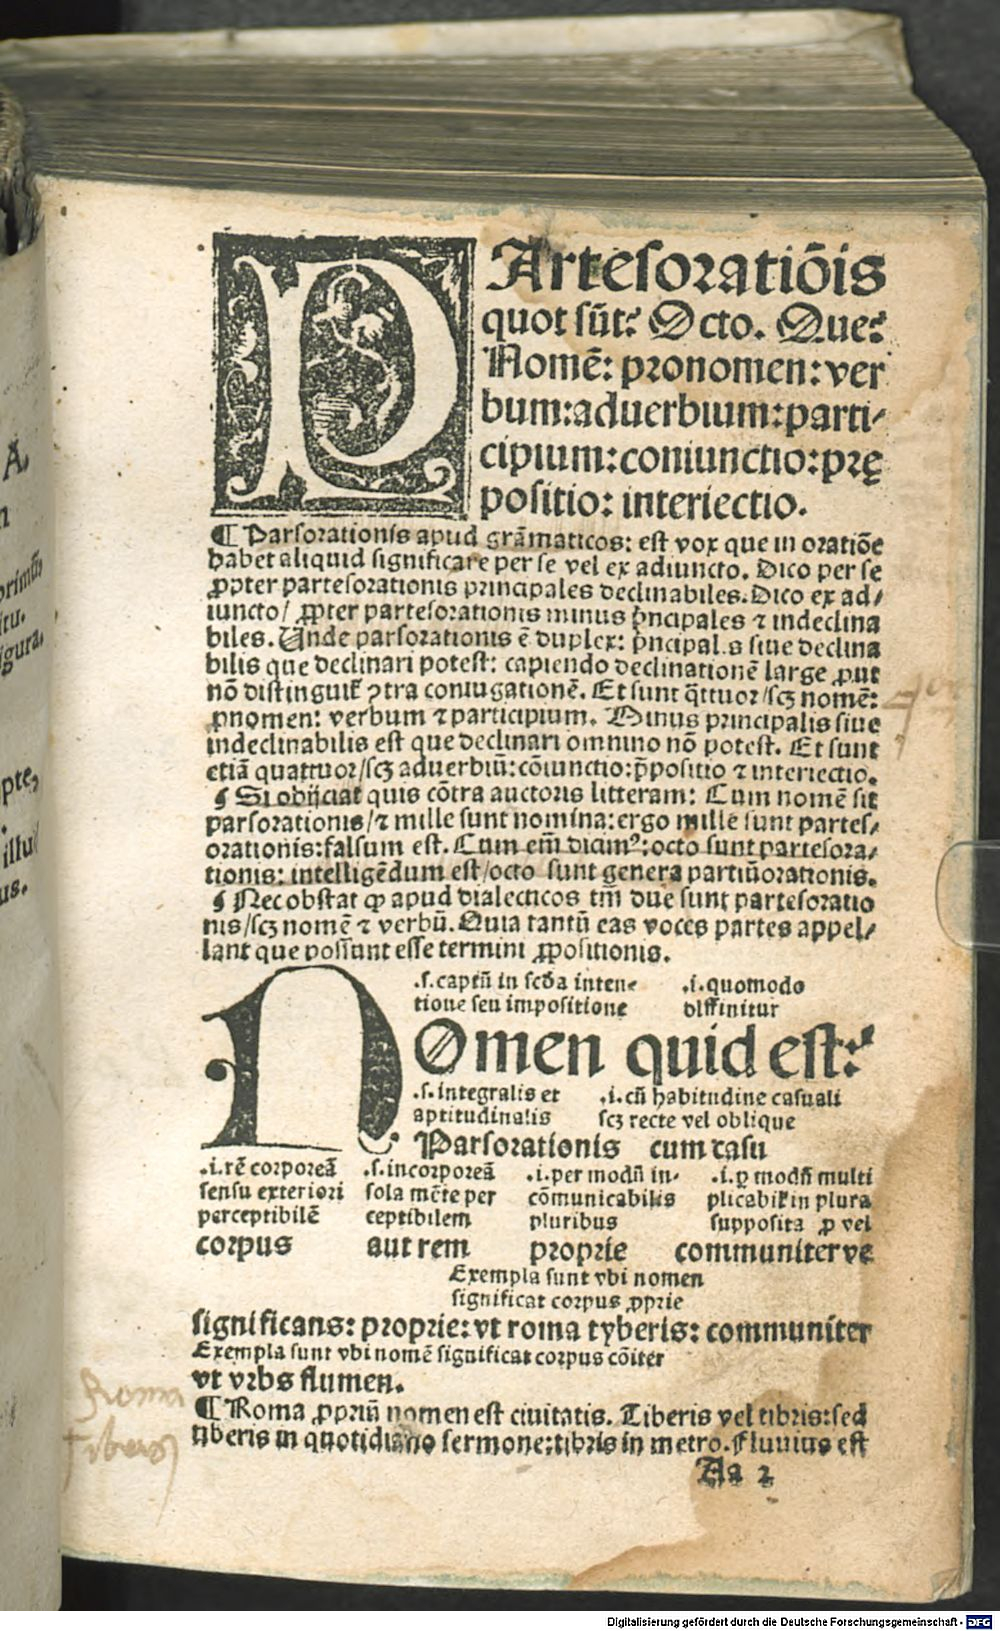 PArtesoratiōis
quot sūt: Octo. Que:
Nomē: pronomen: ver
bum: aduerbium: parti-
cipium: coniunctio: prę
positio: interiectio.
¶ Parsorationis apud grāmaticos: est vox que in oratiōe
habet aliquid significare per se vel ex adiuncto. Dico per se
ꝓpter partesorationis principales declinabiles. Dico ex ad/
iuncto/ ꝓpter partesorationis minus p̄ncipales ⁊ indeclina
biles. Unde parsorationis ē duplex: p̄ncipalis siue declina
bilis que declinari potest: capiendo declinationē large ꝓut
nō distinguit᷑ ꝯtra coniugationē. Et sunt q̄ttuor/scꝫ nomē:
ꝓnomen: verbum ⁊ participium. Minus principalis siue
indeclinabilis est que declinari omnino nō potest. Et sunt
etiā quattuor/scꝫ aduerbiū: cōiunctio: p̄positio ⁊ interiectio.
¶ Si obijciat quis cōtra auctoris litteram: Cum nomē sit
parsorationis/⁊ mille sunt nomina: ergo mille sunt partes/
orationis: falsum est. Cum em̄ dicimꝰ: octo sunt partesora/
tionis: intelligēdum est/octo sunt genera partiūorationis.
¶ Nec obstat ꝙ apud dialecticos tm̄ due sunt partesoratio
nis/scꝫ nomē ⁊ verbū. Quia tantū eas voces partes appel/
lant que possunt esse termini ꝓpositionis.
.s. captū in scd̄a inten- .i. quomodo
tione seu impositione diffinitur
NOmen quid est:
.s. integralis et .i. cū habitudine casuali
aptitudinalis scꝫ recte vel oblique
Parsorationis cum casu
.i. rē corporeā .s. incorporeā .i. per modū in- .i. ꝑ modū multi
sensu exteriori sola mēte per cōmunicabilis plicabil᷑ in plura
perceptibilē ceptibilem pluribus supposita ꝓ vel
corpus aut rem proprie communiter ve
Exempla sunt vbi nomen
significat corpus ꝓprie
significans: proprie: vt roma tyberis: communiter
Exempla sunt vbi nomē significat corpus cōiter
vt vrbs flumen.
¶ Roma ꝓpriū nomen est ciuitatis. Tiberis vel tibris: sed
tiberis in quotidiano sermone: tibris in metro. Fluuius est
Aa 2
Roma
Tiberis
A.
n
primū
situ.
igura.
pte,
illu
us.
Digitalisierung gefördert durch die Deutsche Forschungsgemeinschaft - DFG